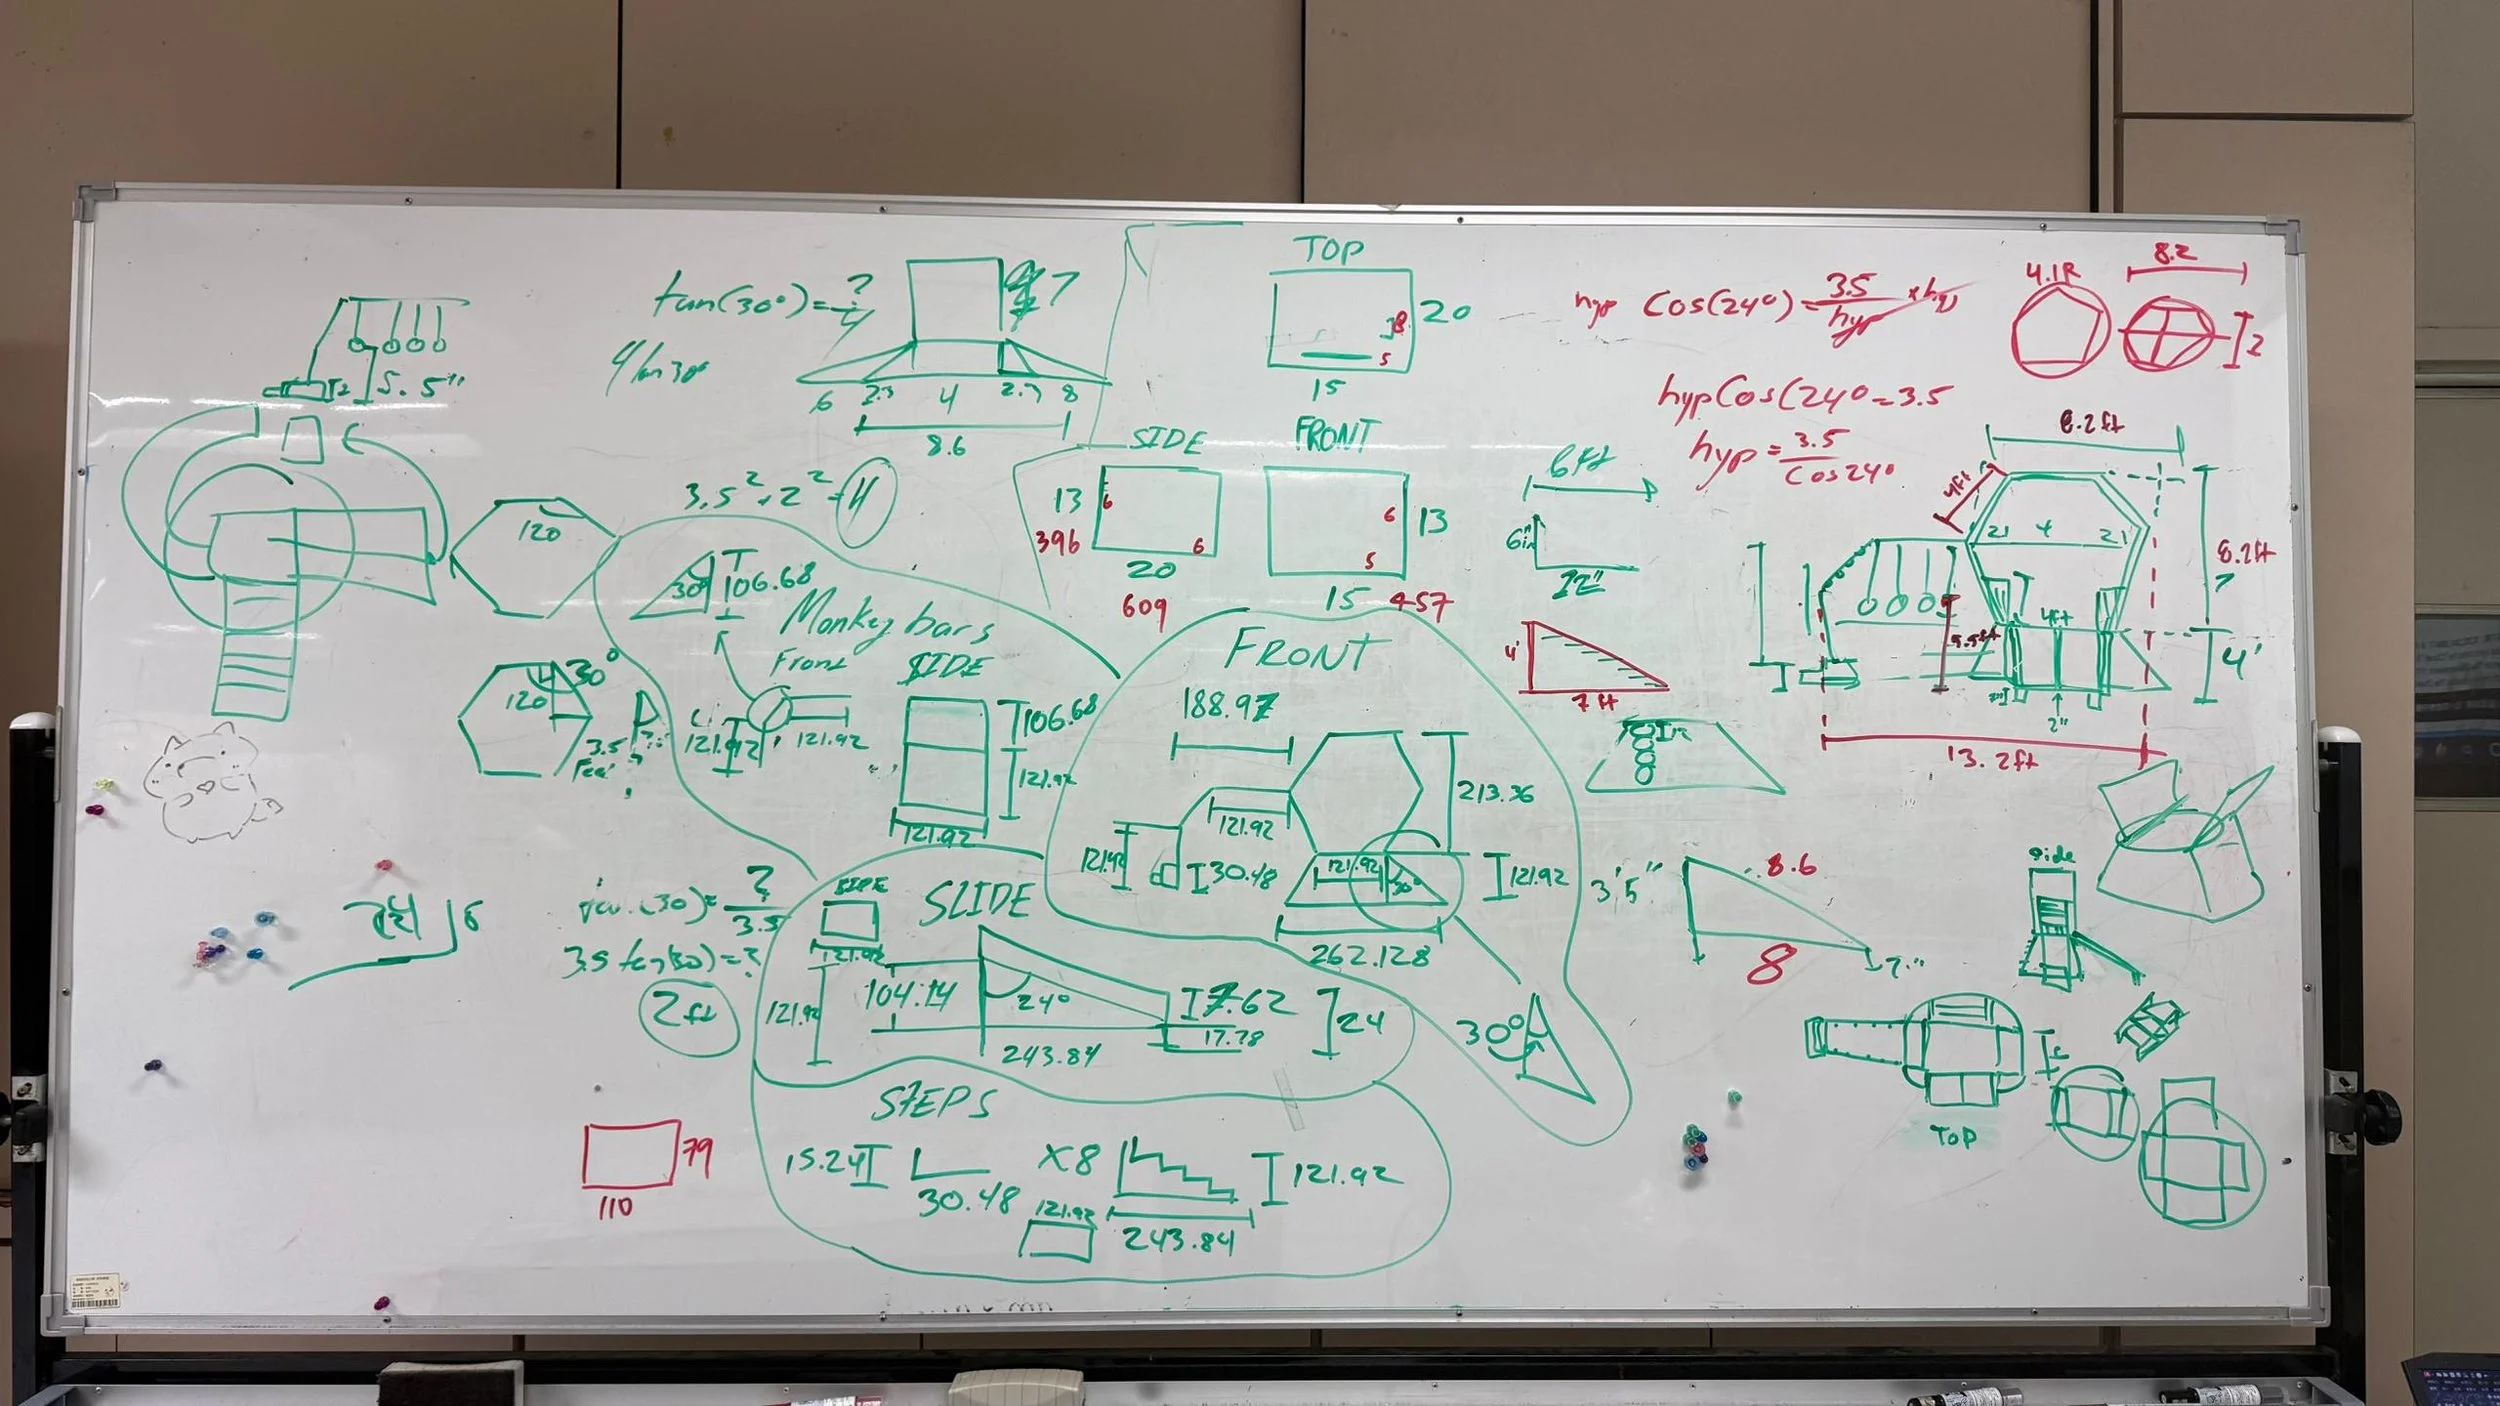 5.5"
tan(30°)=?/4
4/tan 30
7
6 2.3 4 2.3 8
8.6
TOP
20
8
5
15
SIDE
13
396
6
6
20
609
FRONT
6
13
5
15 457
hyp Cos(24°)=3.5/hyp
hypCos(24°=3.5
hyp=3.5/Cos24°
4.1R
8.2
2
6ft
6in
12"
4'
7 ft
8.2ft
4ft
21 4 21
8.2ft
7
5.5ft
4ft
4'
2"
13.2ft
120
3.5²+2²=4
30°
120
3.5
Feet
30
106.68
Monkey bars
Front
121.92
121.92
SIDE
106.68
121.92
121.92
FRONT
188.97
213.36
121.92
121.92
30.48
121.92
30°
121.92
262.128
30°
3'5"
8.6
8
7"
side
TOP
tan(30)=?/3.5
3.5 tan(30)=?
2ft
6
SIDE
121.92
SLIDE
121.92
104.14
24°
7.62
17.78
24
243.84
STEPS
15.24
30.48
X8
121.92
121.92
243.84
79
110